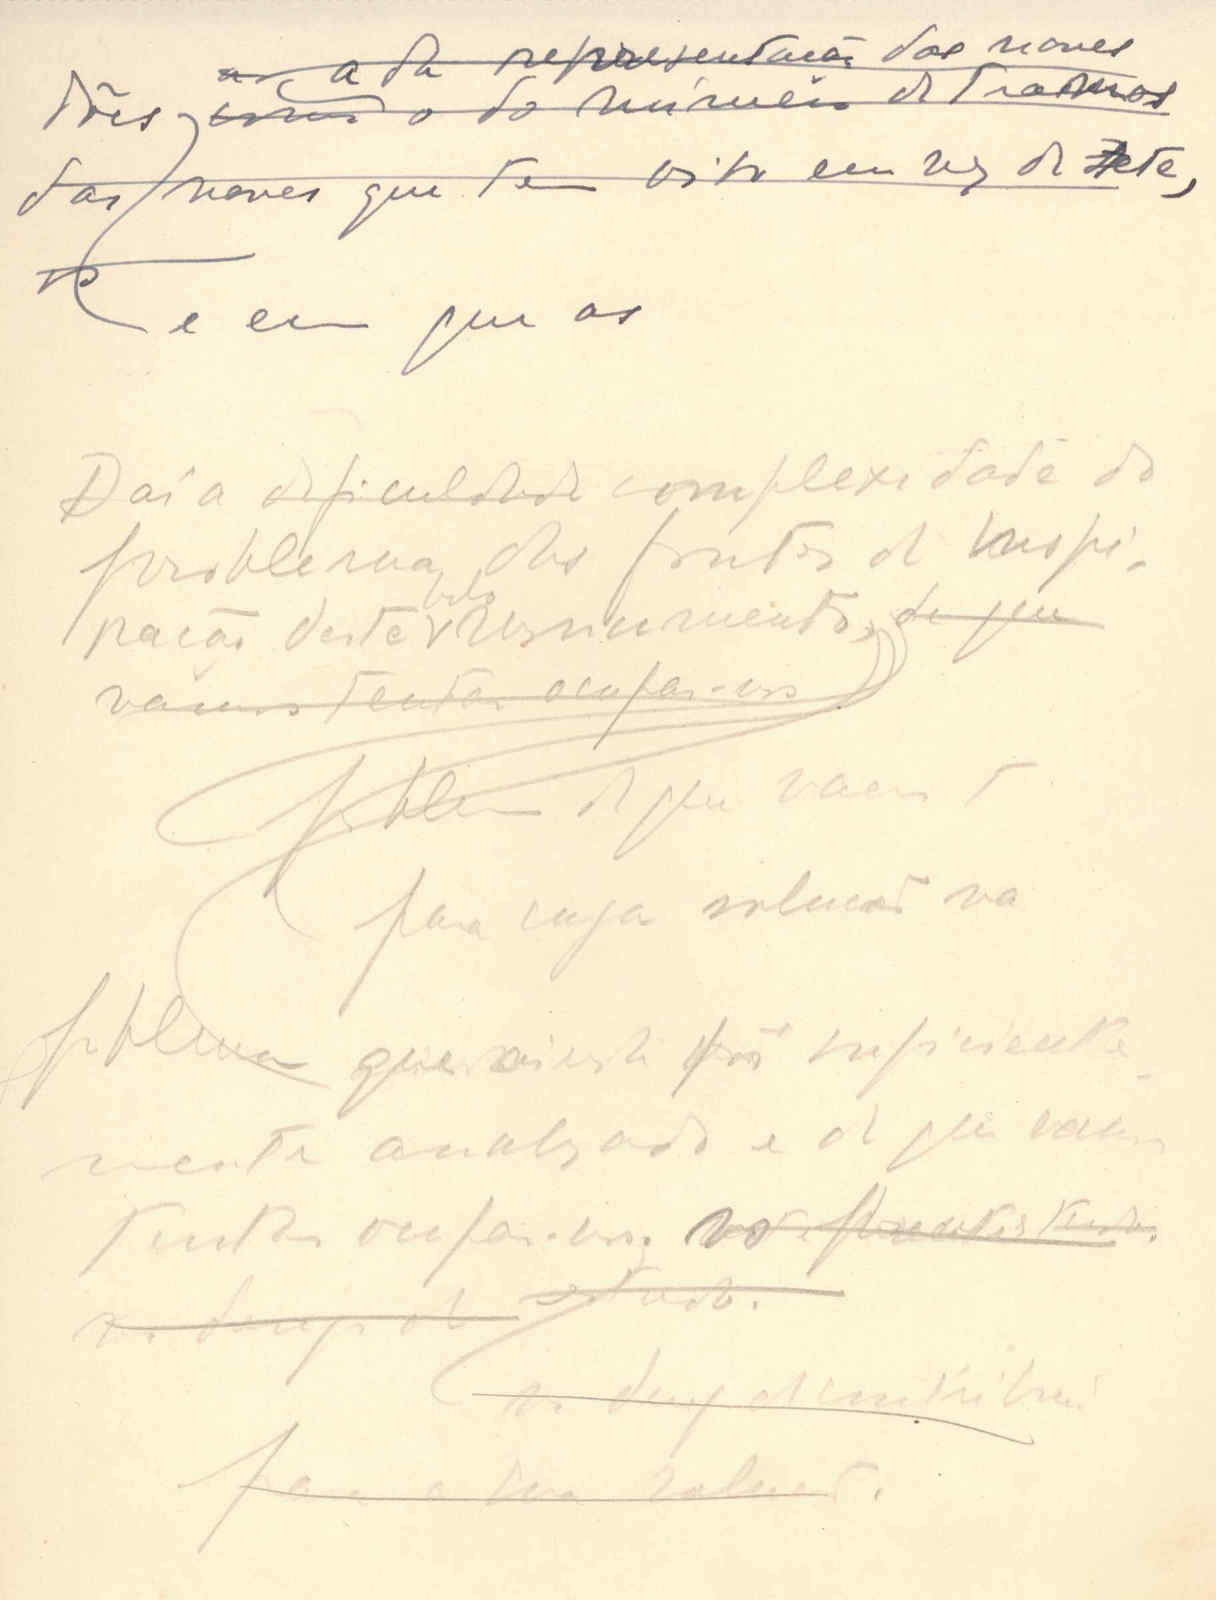 a da representação das naves
dões, como o do número de tramos
das naves que tem oito em vez de sete,
e em que as
Daí a dificuldade complexidade do
problema, das fontes de inspi-
ração deste belo monumento, de que
vamos tentar ocupar-nos
problema de que vamos t
para cuja solução va
problema que ainda não suficiente-
mente analisado e de que vamos
tentar ocupar-nos,
estudo.
no desejo de contribuir
para a sua solução.